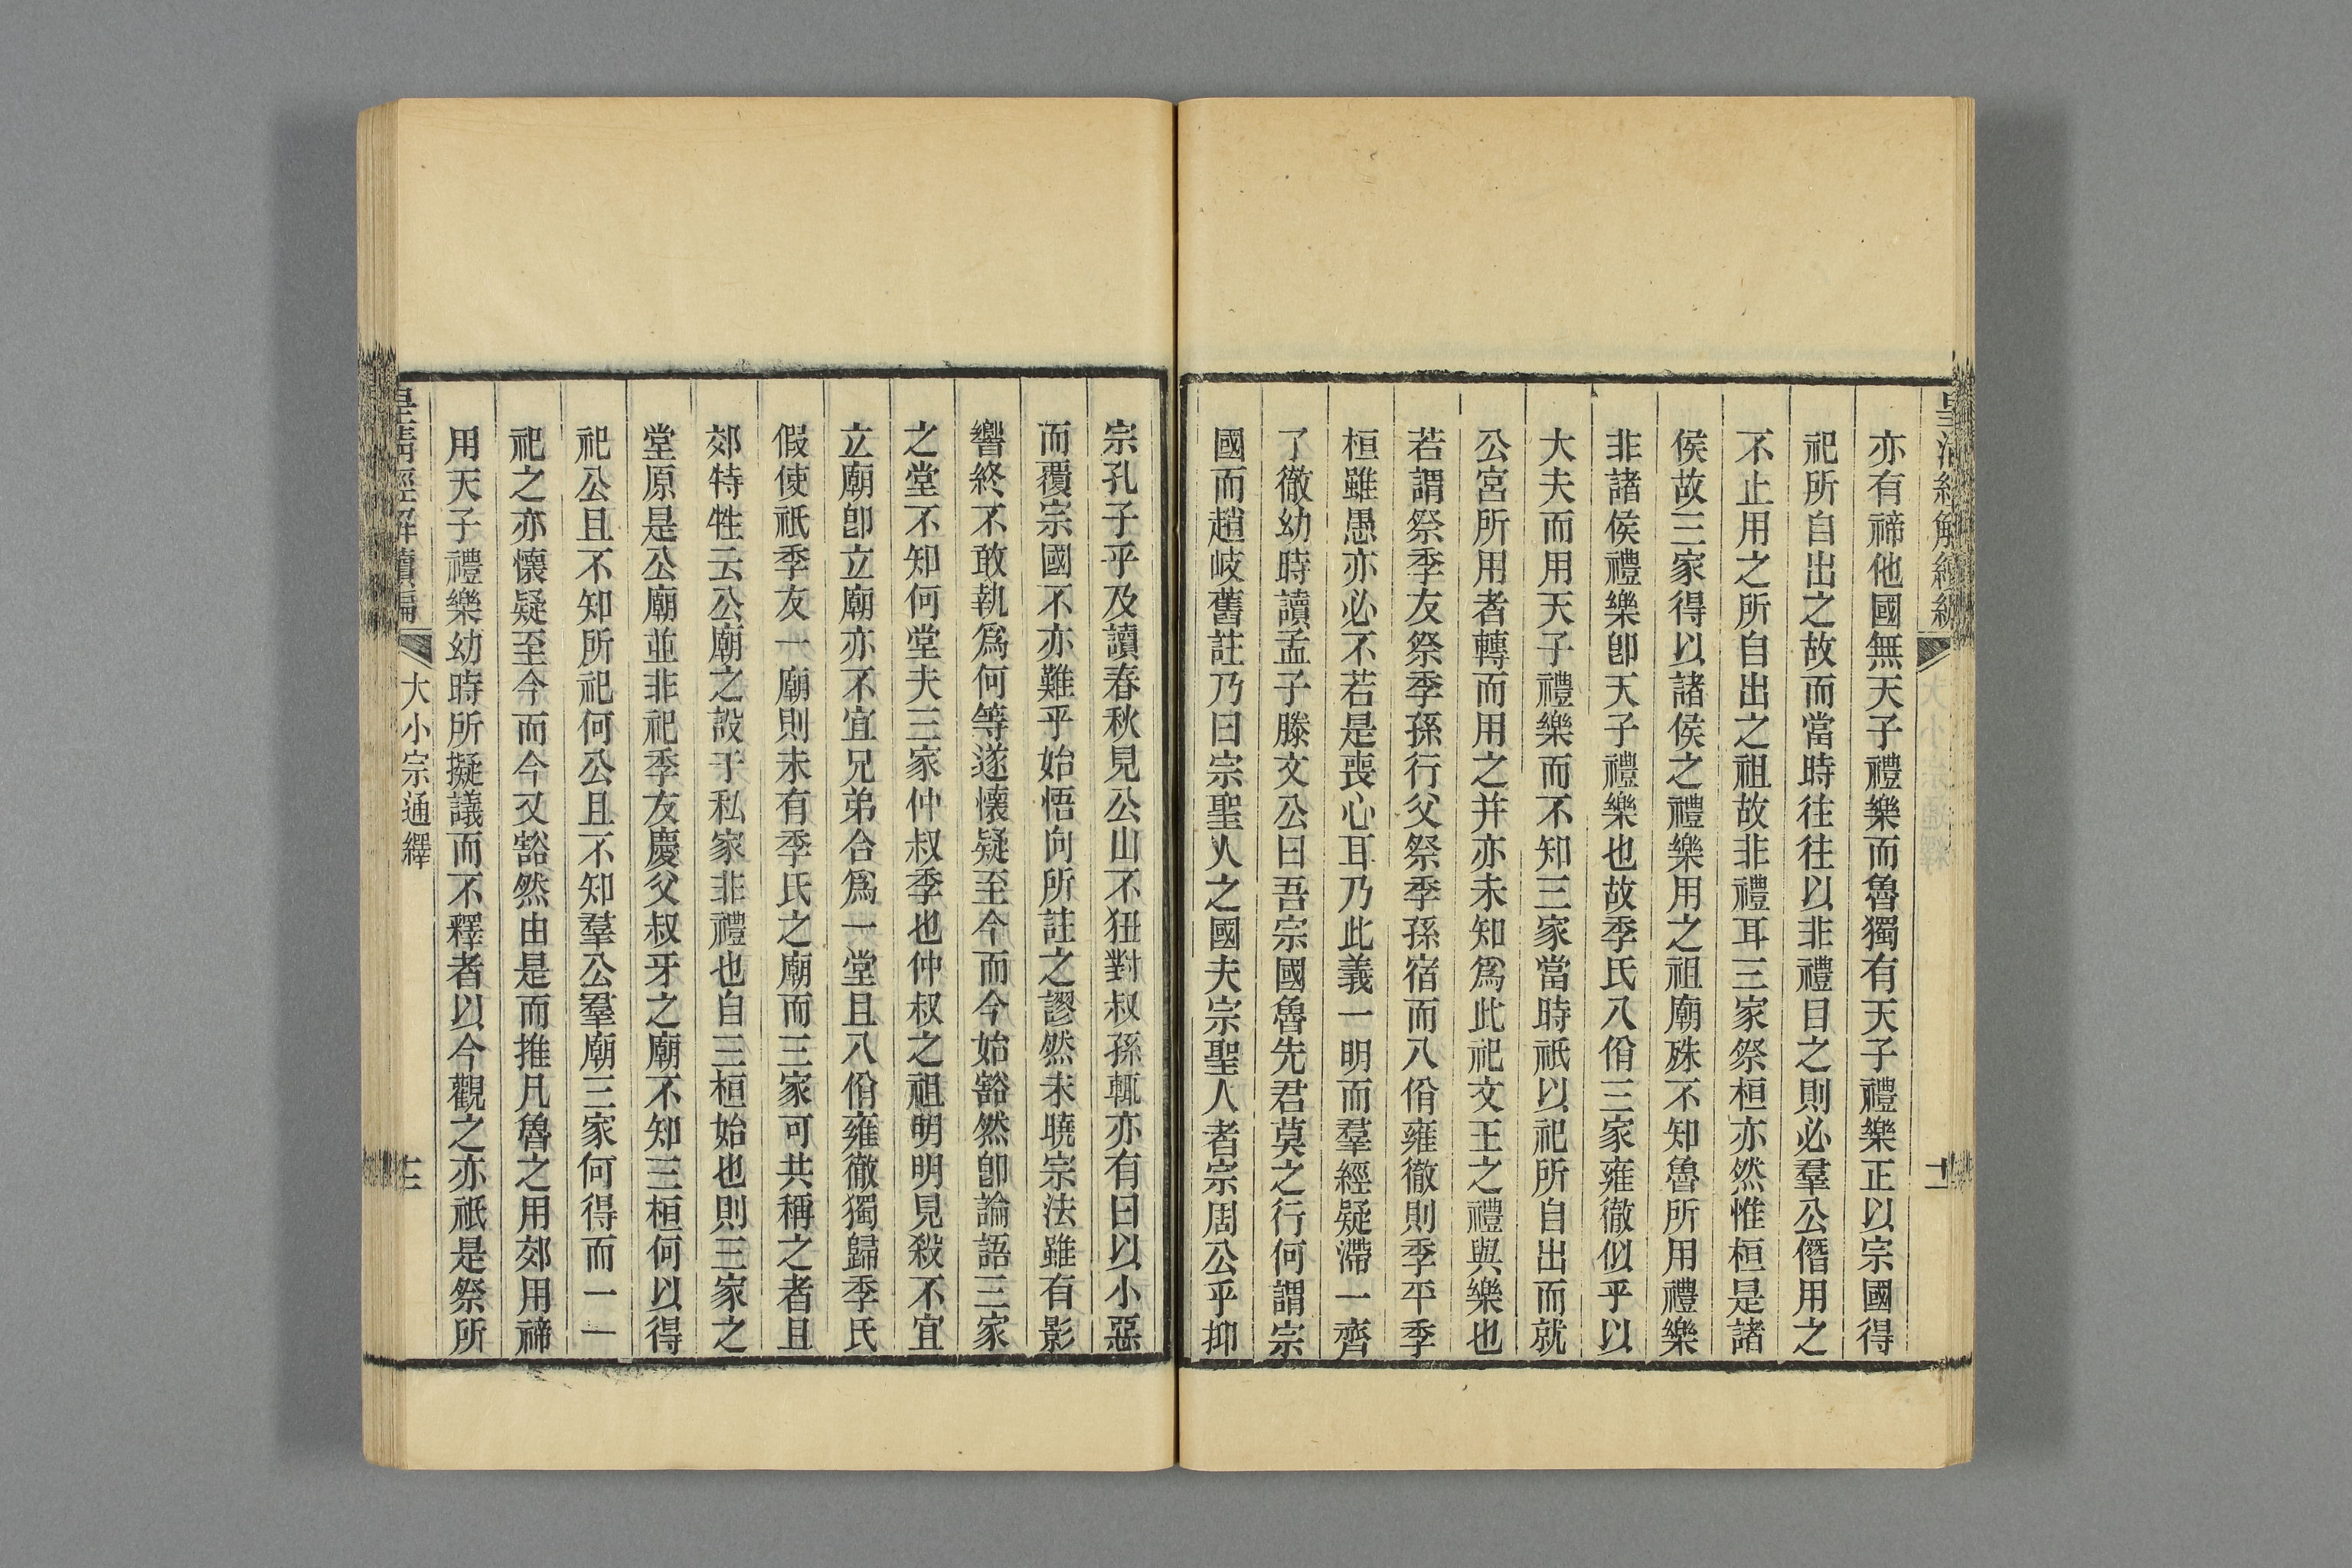 亦有禘他國無天子禮樂而魯獨有天子禮樂正以宗國得
祀所自出之故而當時往往以非禮目之則必羣公僭用之
不止用之所自出之祖故非禮耳三家祭桓亦然惟桓是諸
侯故三家得以諸侯之禮樂用之祖廟殊不知魯所用禮樂
非諸侯禮樂卽天子禮樂也故季氏八佾三家雍徹似乎以
大夫而用天子禮樂而不知三家當時祇以祀所自出而就
公宮所用者轉而用之并亦未知爲此祀文王之禮與樂也
若謂祭季友祭季孫行父祭季孫宿而八佾雍徹則季平季
桓雖愚亦必不若是喪心耳乃此義一明而羣經疑滯一齊
了徹幼時讀孟子滕文公曰吾宗國魯先君莫之行何謂宗
國而趙岐舊註乃曰宗聖人之國夫宗聖人者宗周公乎抑
宗孔子乎及讀春秋見公山不狃對叔孫輒亦有曰以小惡
而覆宗國不亦難乎始悟向所註之謬然未曉宗法雖有影
響終不敢執爲何等遂懷疑至今而今始豁然卽論語三家
之堂不知何堂夫三家仲叔季也仲叔之祖明明見殺不宜
立廟卽立廟亦不宜兄弟合爲一堂且八佾雍徹獨歸季氏
假使祇季友一廟則未有季氏之廟而三家可共稱之者且
郊特牲云公廟之設于私家非禮也自三桓始也則三家之
堂原是公廟並非祀季友慶父叔牙之廟不知三桓何以得
祀公且不知所祀何公且不知羣公羣廟三家何得而一一
祀之亦懷疑至今而今又豁然由是而推凡魯之用郊用禘
用天子禮樂幼時所擬議而不釋者以今觀之亦祇是祭所
皇清經解續編
大小宗通繹